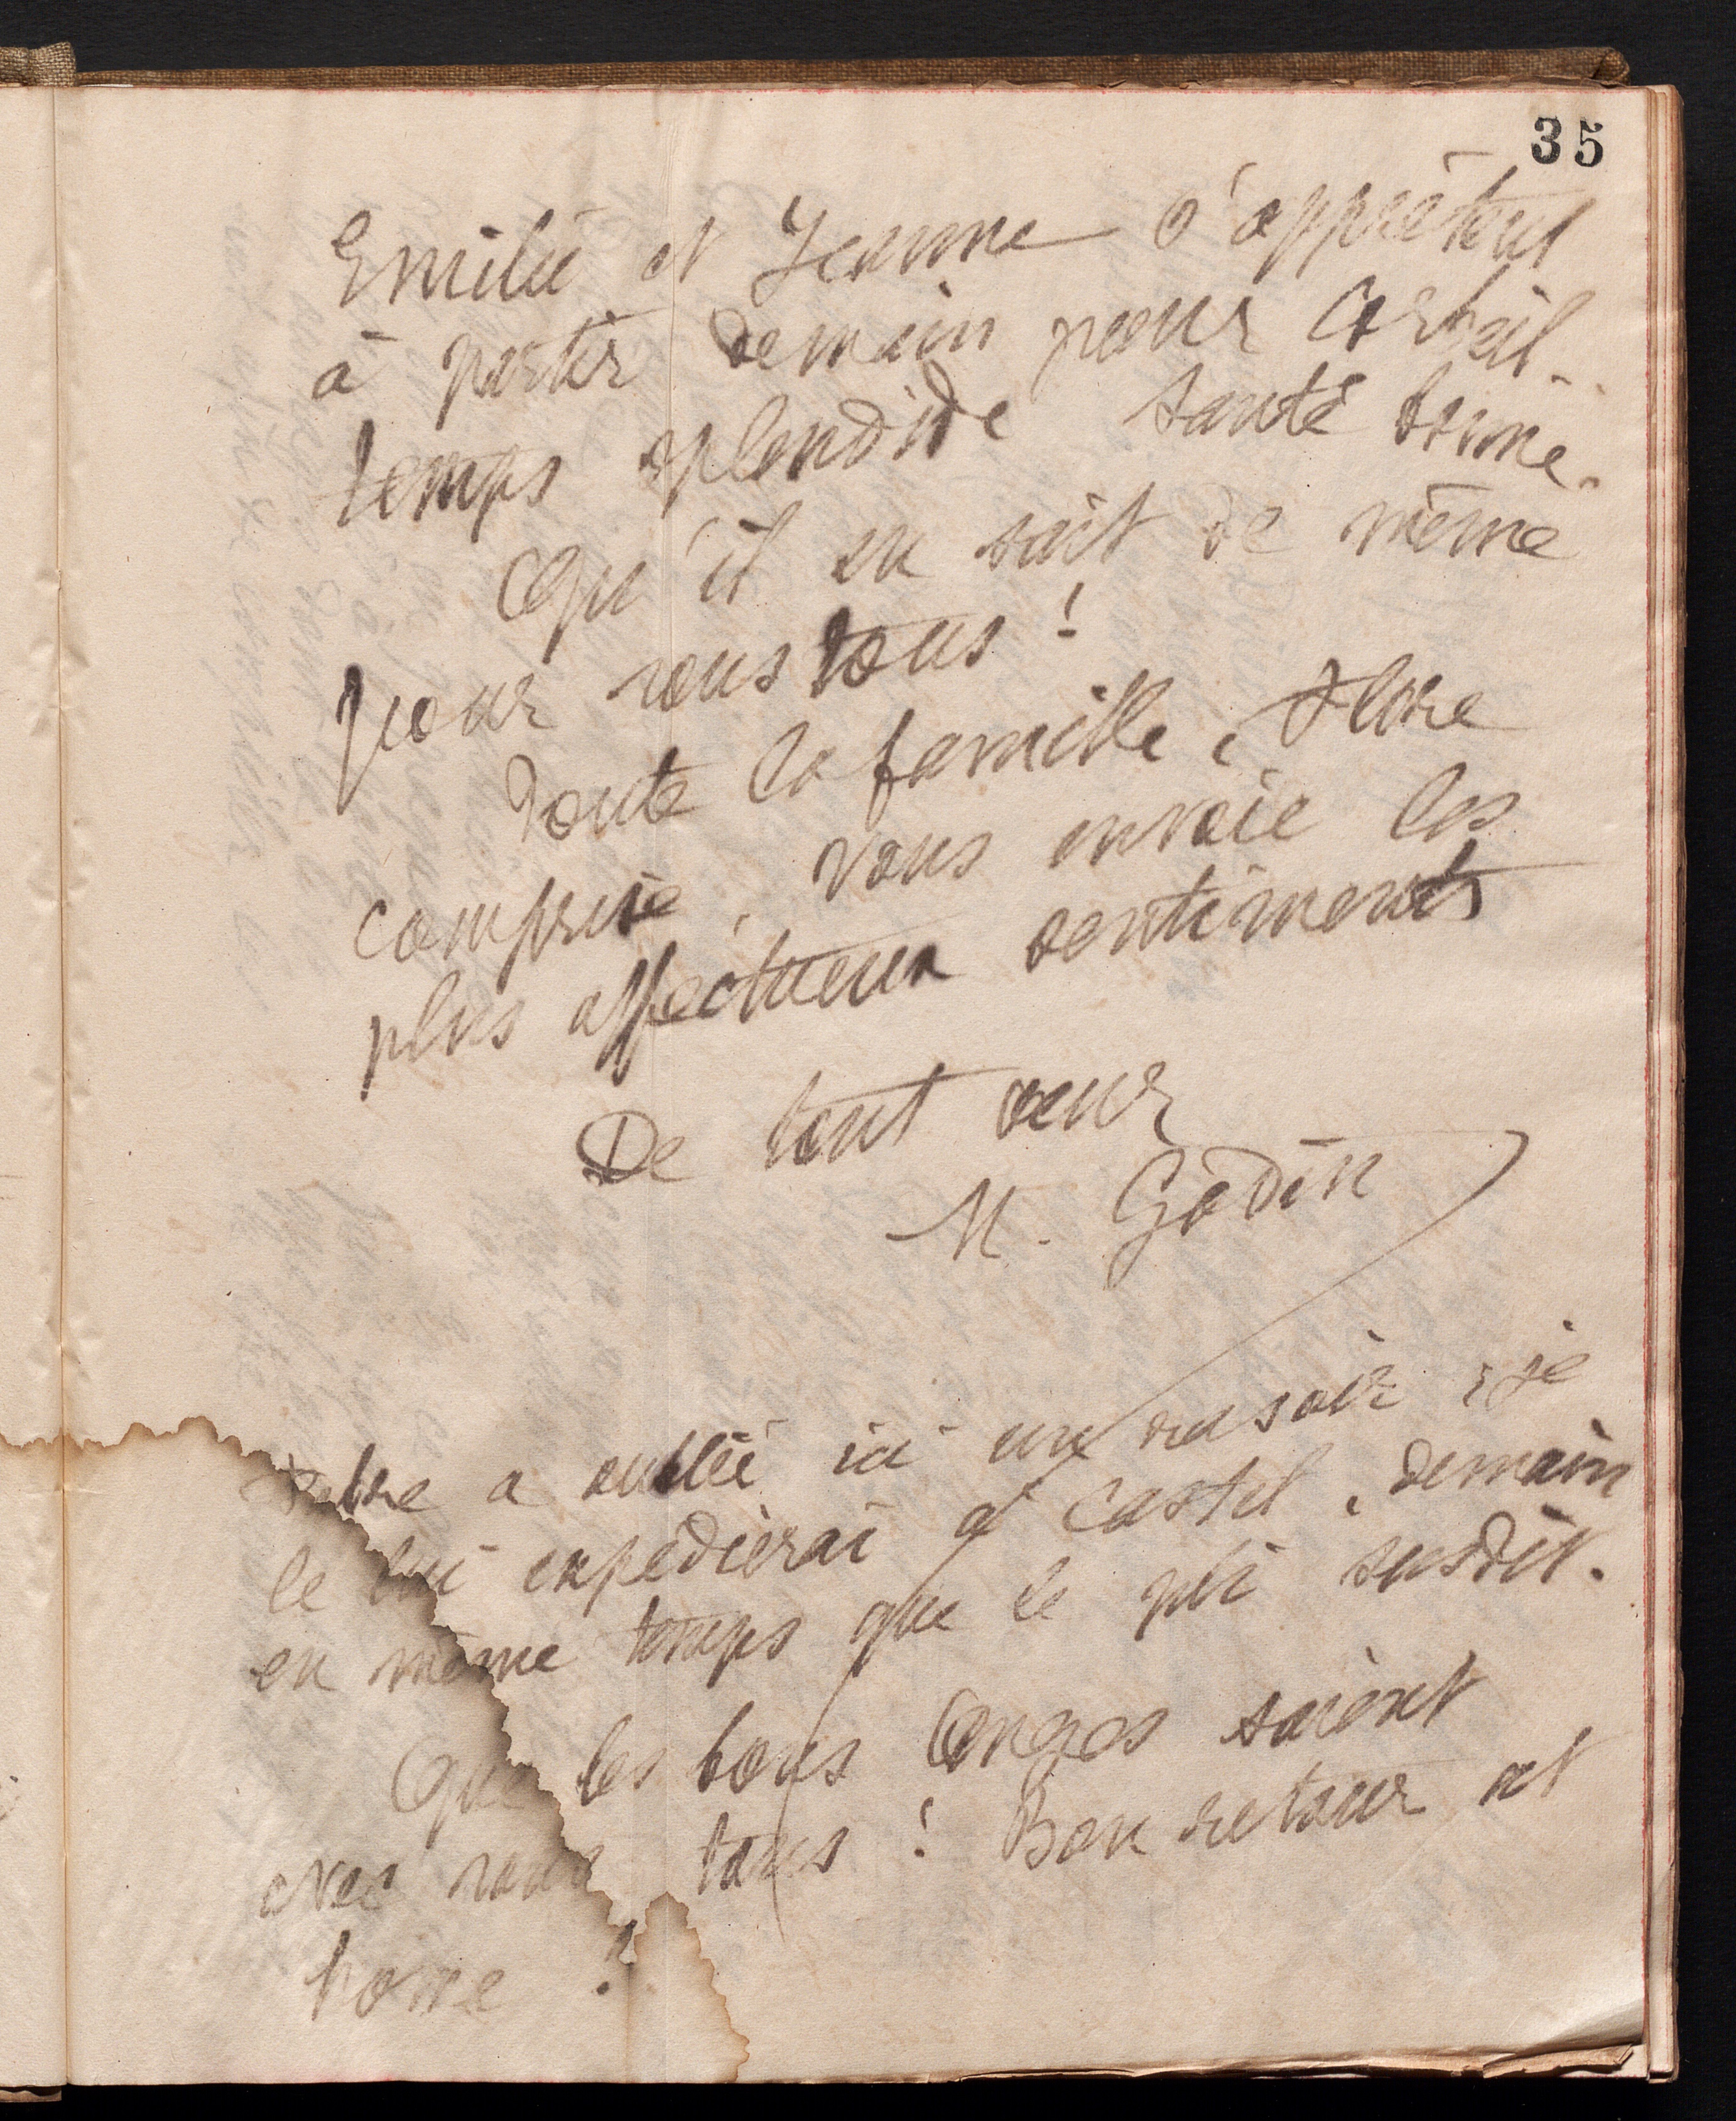 35
Emilie et Jeanne s'apprêtent
à partir demain pour Corbeil.
temps splendide santé bonne.
Qu'il en soit de même
pour vous tous !
Toute la famille, Flore
comprise, vous envoie les
plus affectueux sentiments
De tout cœur
M. Godin
a oublié ici un rasoir ; je
le lui expédierai à Castel, demain
en même temps que le pli susdit.
Que les bons Anges soient
avec vous tous ! Bon retour et
bonne !